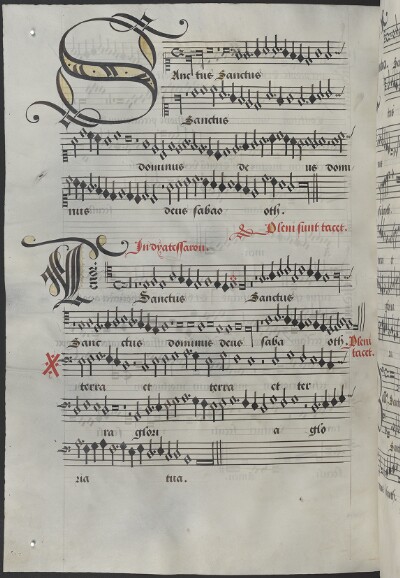 Sanctus Sanctus
Sanctus
dominus de us domi
nus deus sabao oth.
Pleni sunt tacet.
In dyatessaron.
Tenor.
Sanctus Sanctus
Sanc ctus dominus deus saba oth. Pleni
tacet.
terra et terra et ter
ra glori a glo
ria tua.